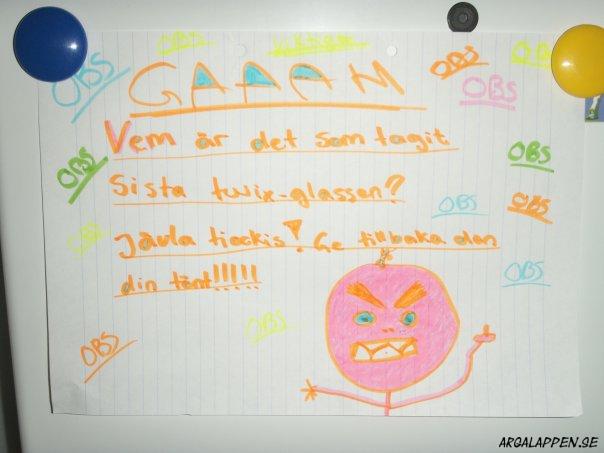 OBS
OBS
Viktigt
OBS
OBS
OBS
GAAAH
Vem är det som tagit
OBS
OBS
Sista twix-glassen?
OBS
OBS
OBS
Jävla tjockis! Ge tillbaka den
din tönt!!!!!
OBS
OBS
OBS
ARGALAPPEN.SE